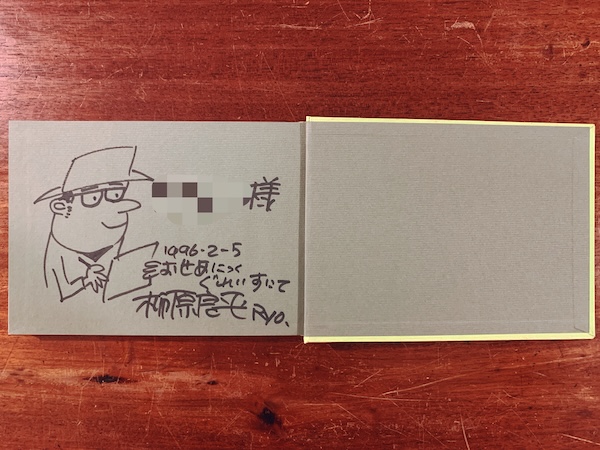 様
1996-2-5
おせあにっく
ぐれいすにて
柳原良平 Ryo.